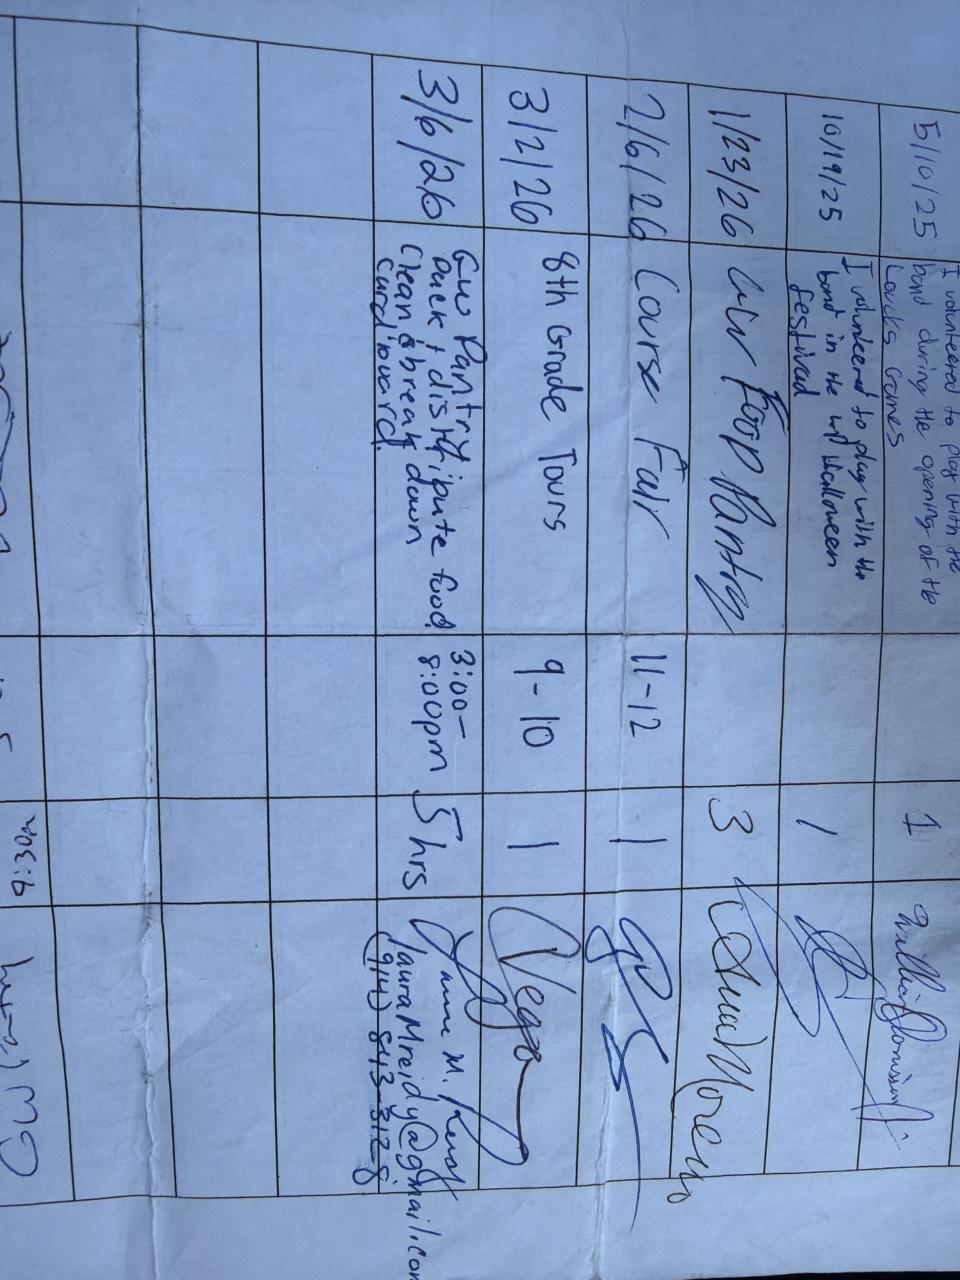 5/10/25
I volunteered to play with the
band during the opening of the
Loucks Games
1
10/19/25
I volunteered to play with the
band in the Halloween
festival
1
1/23/26
Food Pantry
3
2/6/26
Course Fair
11-12
1
3/2/26
8th Grade Tours
9-10
1
Vega
3/6/26
Pantry
pack & distribute food
Clean & break down
cardboard.
3:00-
8:00pm
5 hrs
M.
lauraMreidy@gmail.com
(914) 843-3128